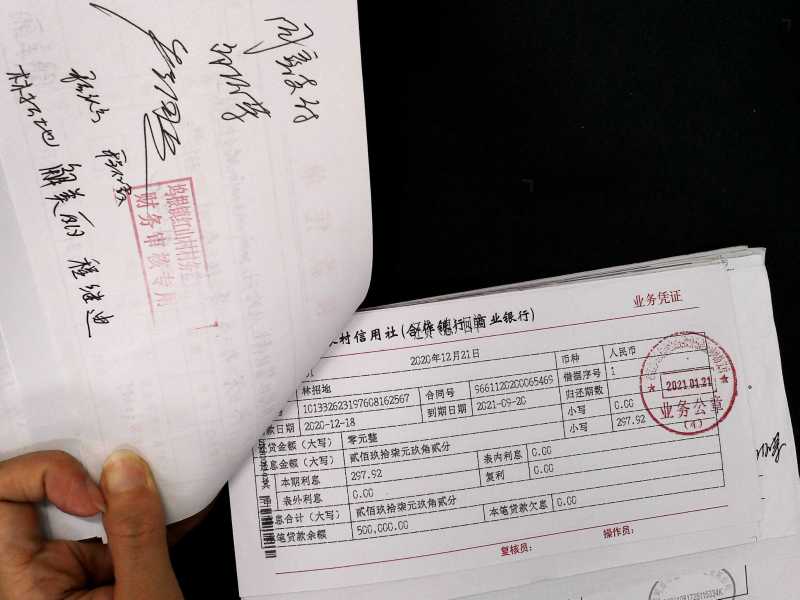 同意支付
林招地
解美丽
程继迪
财务审核专用
业务凭证
村信用社(合作银行 商业银行)
2020年12月21日
币种 人民币
林招地
合同号 9661120200065469 借据序号 1
101332623197608162567
到期日期 2021-09-20 归还期数
款日期 2020-12-18
小写 0.00
贷金额(大写) 零元整
小写 297.92
息金额(大写) 贰佰玖拾柒元玖角贰分
本期利息 297.92 表内利息 0.00
表外利息 0.00 复利 0.00
息合计(大写) 贰佰玖拾柒元玖角贰分
笔贷款余额 500,000.00 本笔贷款欠息 0.00
复核员: 操作员:
2021.01.21
业务公章
(4)